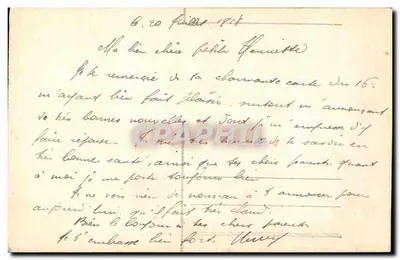 le 20 Juillet 1918
Ma bien chère petite Henriette
Je te remercie de ta charmante carte du 16
m'ayant bien fait plaisir, surtout m'annonçant
de très bonnes nouvelles et dont je m'empresse d'y
faire réponse. Je suis très de te savoir en
très bonne santé, ainsi que tes chers parents quant
à moi je me porte toujours bien
Je ne vois rien de nouveau à t'annoncer pour
aujourd'hui, qu'il fait très chaud.
Bien le bonjour à tes chers parents
Je t'embrasse bien fort.